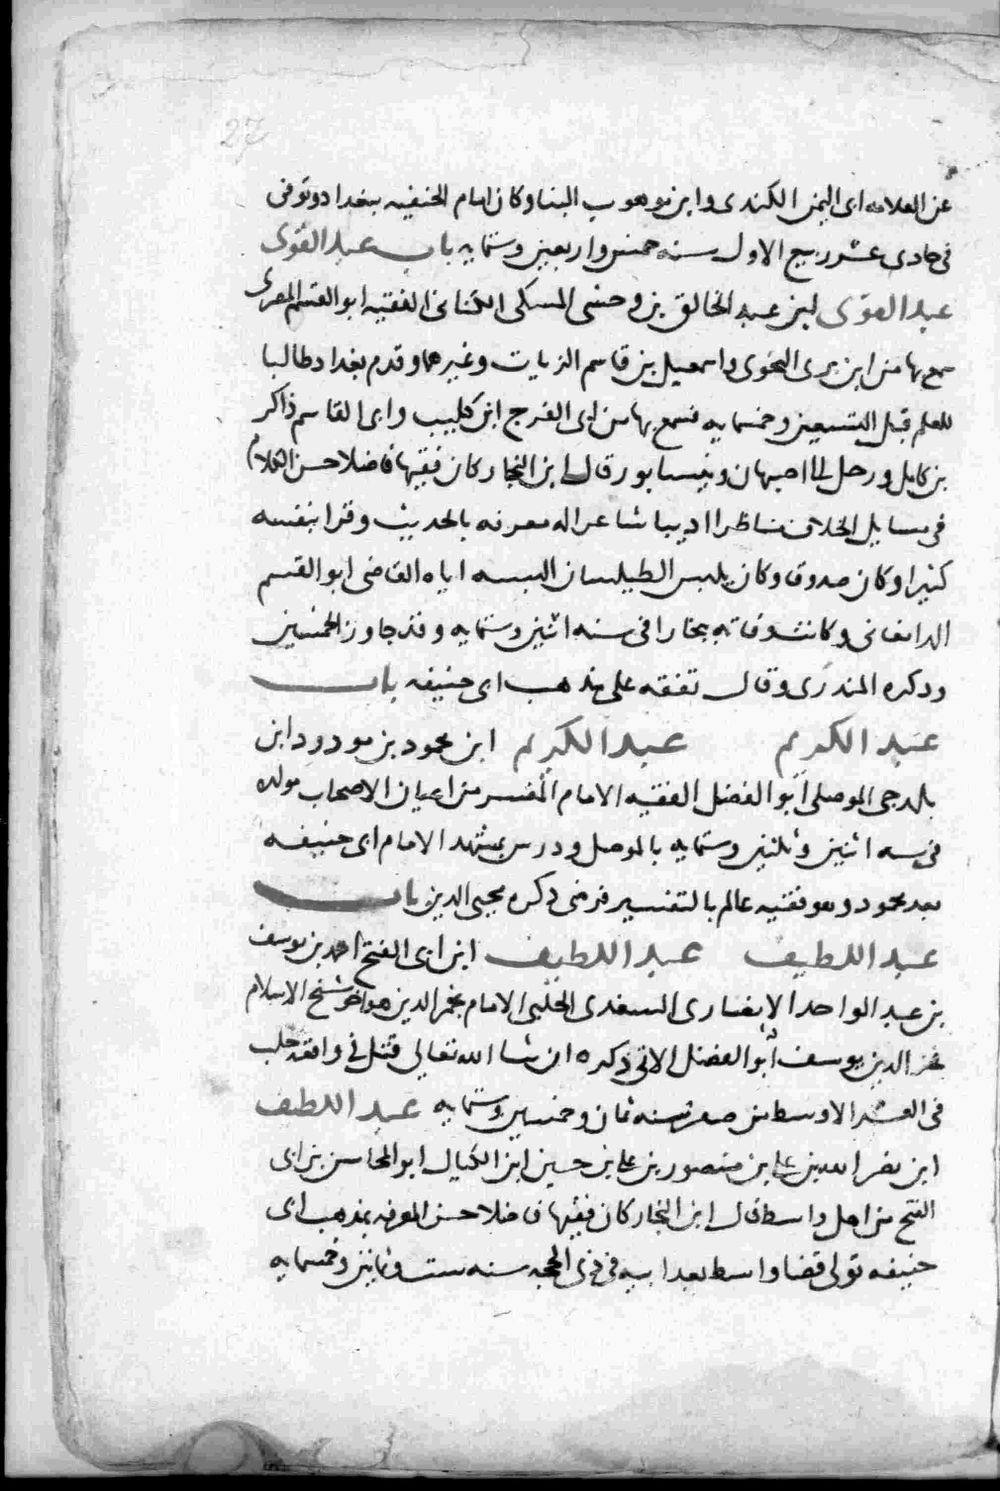 27
عن العلامه ابى اليمن الكندى وابن موهوب البنا وكان امام الحنفيه ببغداد وتوفى
فى حادى عشر ربيع الاول سنه خمس واربعين وستمايه باب عبد القوى
عبد القوى ابن عبد الخالق بن وحشى المسكى الكنانى الفقيه ابو القسم المصرى
سمع بها من ابن برى النحوى واسمعيل بن قاسم الزيات وغيرهما وقدم بغداد طالبا
للعلم قبل التسعين وخمسمايه فسمع بها من ابى الفرج ابن كليب وابى القاسم ذاكر
بن كامل ورحل الى اصبهان ونيسابور قال ابن النجار كان فقيها فاضلا حسن الكلام
فى مسايل الخلاف مناظرا اديبا شاعرا له معرفه بالحديث وقرا بنفسه
كثيرا وكان صدوقا وكان يلبس الطيلسان البسه اياه القاضى ابو القسم
الدامغانى وكانت وفاته ببخارا فى سنه اثنين وستمايه وقد جاوز الخمسين
وذكره المنذرى وقال تفقه على مذهب ابى حنيفه باب
عبد الكريم عبد الكريم ابن محمود بن مودود ابن
بلدجى الموصلى ابو الفضل الفقيه الامام المفسر من اعيان الاصحاب مولده
فى سنه اثنين وثلثين وستمايه بالموصل ودرس بمشهد الامام ابى حنيفه
بعد محمود وهو فقيه عالم بالتفسير فرضى ذكره محيى الدين باب
عبد اللطيف عبد اللطيف ابن ابى الفتح احمد بن يوسف
بن عبد الواحد الانصارى السعدى الحلبى الامام نجم الدين هو اخو شيخ الاسلام
فخر الدين يوسف ابو الفضل الاتى ذكره ان شا الله تعالى قتل فى واقعه حلب
فى العشر الاوسط من صفر سنه ثمان وخمسين وستمايه عبد اللطيف
ابن نصر الله بن على بن منصور بن على بن حسين ابن الكيال ابو المحاسن بن ابى
الفتح من اهل واسط قال ابن النجار كان فقيها فاضلا حسن المعرفه بمذهب ابى
حنيفه تولى قضا واسط بعد ابيه فى ذى الحجه سنه ست وثمانين وخمسمايه